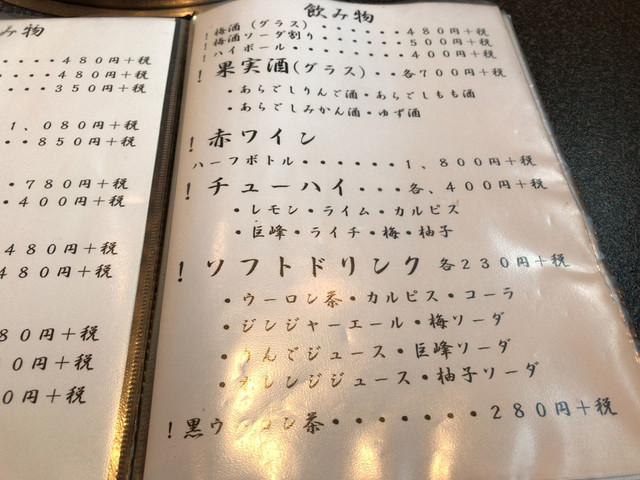 み物
・・・・480円+税
・・・・480円+税
・・・・350円+税
1、080円+税
・・850円+税
・・780円+税
・・400円+税
480円+税
480円+税
80円+税
0円+税
0円+税
飲み物
梅酒(グラス)・・・・・480円+税
梅酒ソーダ割り・・・・500円+税
ハイボール・・・・・・400円+税
!果実酒(グラス)・・各700円+税
・あらごしりんご酒・あらごしもも酒
・あらごしみかん酒・ゆず酒
!赤ワイン
ハーフボトル・・・・・・1、800円+税
!チューハイ・・・各、400円+税
・レモン・ライム・カルピス
・巨峰・ライチ・梅・柚子
!ソフトドリンク 各230円+税
・ウーロン茶・カルピス・コーラ
・ジンジャーエール・梅ソーダ
・うんごジュース・巨峰ソーダ
・オレンジジュース・柚子ソーダ
!黒ウーロン茶・・・・・・・280円+税